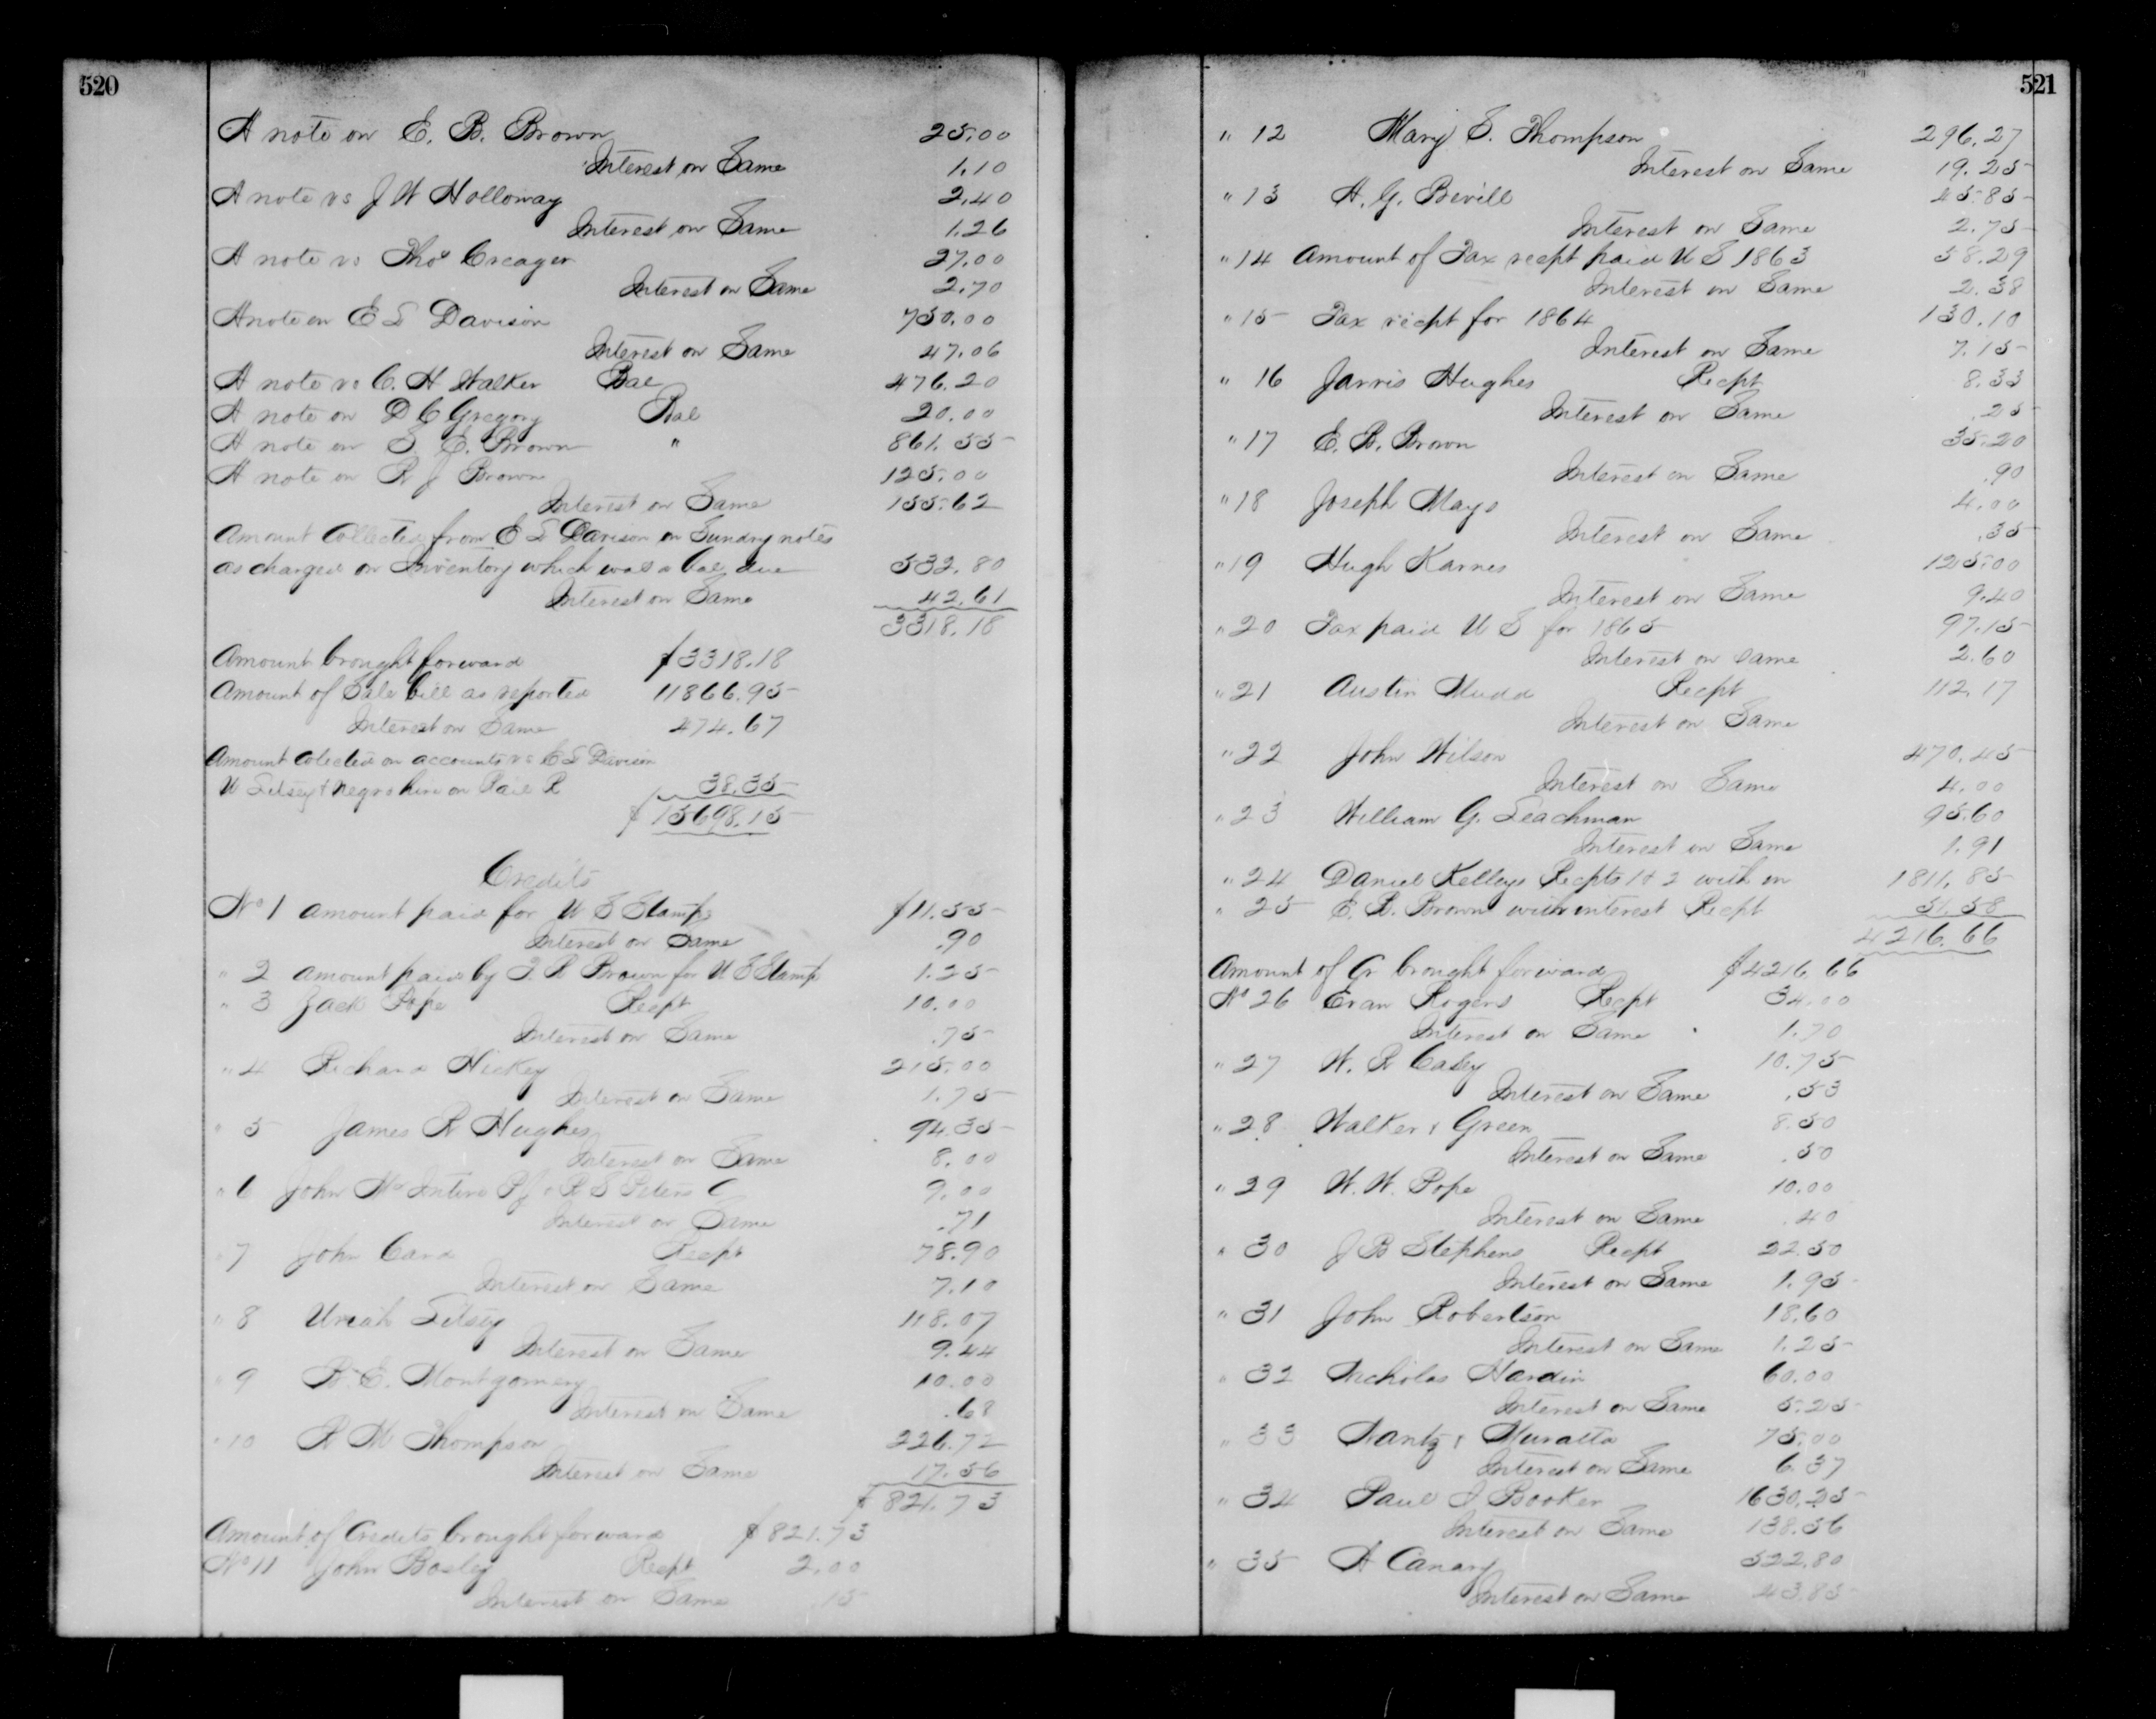 520
A note on E. B. Brown 25.00
Interest on Same 1.10
A note vs J W Holloway 2.40
Interest on Same 1.26
A note vs Thos Creager 27.00
Interest on Same 2.70
A note on E L Davison 750.00
Interest on Same 47.06
A note vs C. H Walker Bal 476.20
A note on D C Gregory Bal 20.00
A note on S. E. Brown " 861.55
A note on R J Brown 125.00
Interest on Same 155.62
Amount Collected from E L Davison on Sundry notes
as charged on Inventory which was a bal due 532.80
Interest on Same 42.61
3318.18
Amount brought forward $3318.18
Amount of Sale bill as reported 11866.95
Interest on Same 474.67
Amount Colected on accounts vs E L Davison
U Litsey & negro hire on Rail R 38.35
$15698.15
Credits
No 1 Amount paid for U S Stamps $11.55
Interest on Same .90
" 2 Amount paid by T. R Brown for U S Stamp 1.25
" 3 Jack Pope Recpt 10.00
Interest on Same .75
" 4 Richard Hickey 215.00
Interest on Same 1.75
" 5 James R Hughes 94.35
Interest on Same 8.00
" 6 John McIntire R S Peters 9.00
Interest on Same .71
" 7 John Cand Recpt 78.90
Interest on Same 7.10
" 8 Uriah Litsey 118.07
Interest on Same 9.44
" 9 B. E. Montgomery 10.00
Interest on Same .68
" 10 R M Thompson 226.72
Interest on Same 17.56
$821.73
Amount of Credits brought forward $821.73
No 11 John Bosley Recpt 2.00
Interest on Same .15
521
" 12 Mary S. Thompson 296.27
Interest on Same 19.25
" 13 H. G. Bevill 45.85
Interest on Same 2.75
" 14 Amount of Tax recpt paid U S 1863 58.29
Interest on Same 2.38
" 15 Tax recpt for 1864 130.10
Interest on Same 7.15
" 16 Jarvis Hughes Recpt 8.33
Interest on Same .25
" 17 E. B. Brown 35.20
Interest on Same .90
" 18 Joseph Mays 4.00
Interest on Same .35
" 19 Hugh Karnes 125.00
Interest on Same 9.40
" 20 Tax paid U S for 1865 97.15
Interest on same 2.60
" 21 Austin Mudd Recpt 112.17
Interest on Same
" 22 John Wilson 470.45
Interest on Same 4.00
" 23 William G. Leachman 95.60
Interest on Same 1.91
" 24 Daniel Kelleys Recpts 1 & 2 with in 1811.85
" 25 E. B. Brown with interest Recpt 51.58
4216.66
Amount of Cr brought forward $4216.66
No 26 Evan Rogers Recpt 34.00
Interest on Same 1.70
" 27 W. R Casey 10.75
Interest on Same .53
" 28 Walker & Green 8.50
Interest on Same .50
" 29 W. W. Pope 10.00
Interest on Same .40
" 30 J B Stephens Recpt 22.50
Interest on Same 1.95
" 31 John Robertson 18.60
Interest on Same 1.25
" 32 Nicholas Hardin 60.00
Interest on Same 5.25
" 33 Wantz & Muratta 75.00
Interest on Same 6.37
" 34 Paul I Booker 1630.25
Interest on Same 138.56
" 35 A Canary 522.80
Interest on Same 43.85